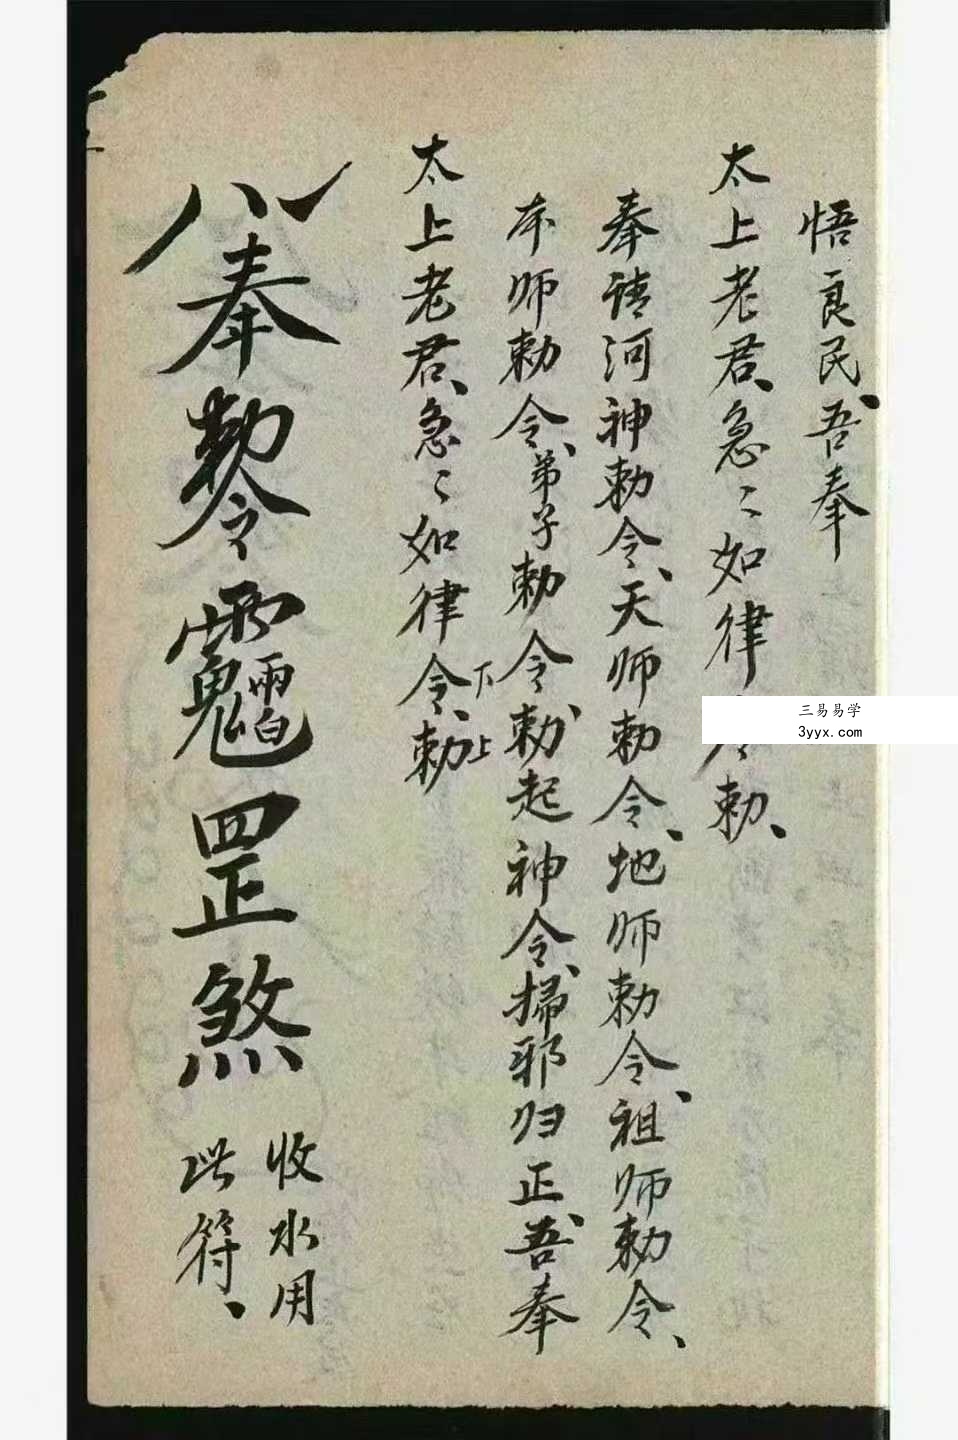 悟良民、吾奉
太上老君、急〻如律令勅、
奉請河神勅令、天师勅令、地师勅令、祖师勅令、
本师勅令、弟子勅令、勅起神令、掃邪归正、吾奉
太上老君、急〻如律令、勅
下
上
奉勅令
罡煞
收水用
此符、
三易易学
3yyx.com